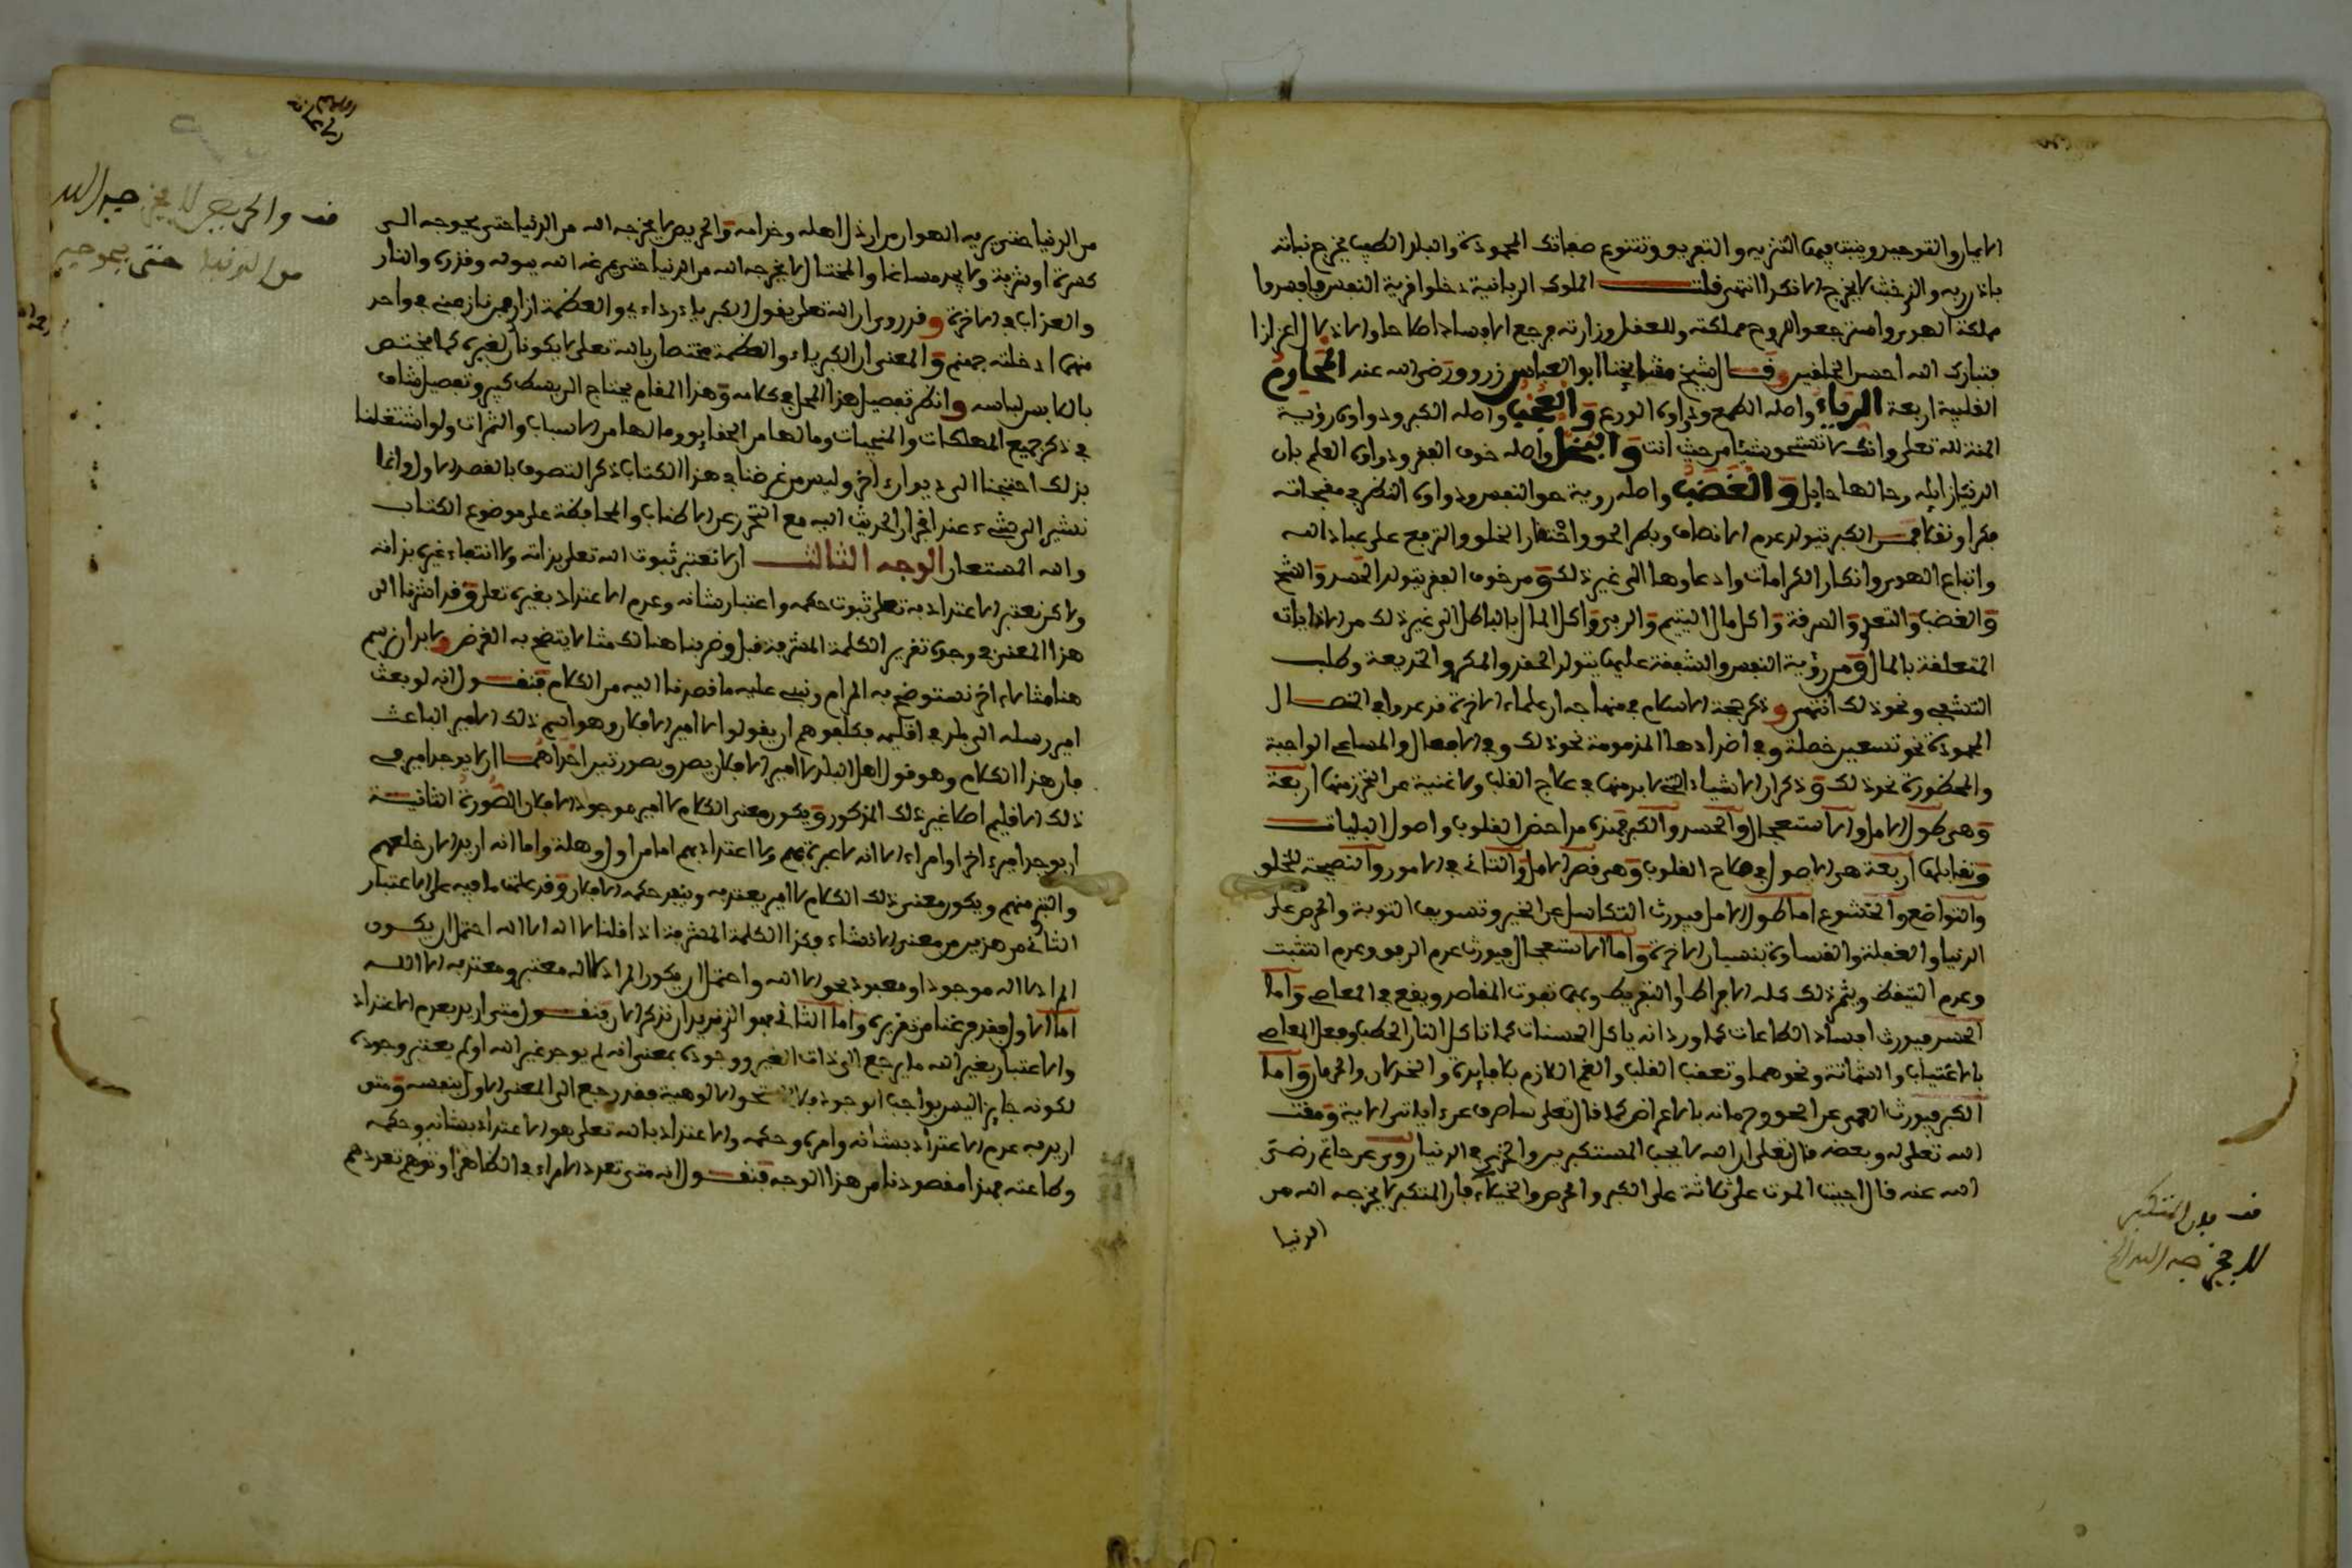 الايمان والتوحيد وينبت فيها التنزيه والتعريف وتتنوع صفاتك المحمودة والبلد الطيب يخرج نباته
باذن ربه والذي خبث لا يخرج الا نكدا انتهى قلت الملوك الربانية دخلوا قرية النفس وافسدوا
مملكة الهوى واسترجعوا للروح مملكته وللعقل وزارته فرجع الافساد اصلاحا والاذلال اعزازا
فتبارك الله احسن الخالقين وقال الشيخ مشايخنا ابو العباس زروق رضي الله عنه المحارم
القلبية اربعة الرياء واصله الطمع ودواؤه الورع والعجب واصله الكبر ودواؤه رؤية
المنة لله تعلى وانك لا تستحق شيئا من حيث انت والبخل واصله خوف الفقر ودواؤه العلم بان
الدنيا زايلة وحالها حايل والغضب واصله رؤية حق النفس ودواؤه النظر في مقبحاته
فكرا ونقلا فمن الكبر يتولد عدم الانصاف وبطر الحق واحتقار الخلق والترفع على عباد الله
واتباع الهوى وانكار الكرامات وادعاؤها الى غير ذلك ومن خوف الفقر يتولد الحسد والشح
والغصب والتعدي والسرقة واكل مال اليتيم والربى واكل المال بالباطل الى غير ذلك من الاذايات
المتعلقة بالمال ومن رؤية النفس والشفقة عليها يتولد الحقد والمكر والخديعة وطلب
التشفي ونحو ذلك انتهى وذكر حجة الاسلام في منهاجه ان علماء الاخرة قد عدوا في الخصال
المحمودة نحو تسعين خصلة وفي اضدادها المذمومة نحو ذلك وفي الافعال والمساعي الواجبة
والمحظورة نحو ذلك وذكر ان الاشياء التي لا بد منها في علاج القلب ولا غنية عن التحرز منها اربعة
وهي طول الامل والاستعجال والحسد والكبر فهذه من امراض القلوب واصول البليات
وتقابلها اربعة هي الاصول في صلاح القلوب وهي قصر الامل والتاني في الامور والنصيحة للخلق
والتواضع والخشوع اما طول الامل فيورث التكاسل عن الخير وتسويف التوبة والحرص على
الدنيا والغفلة والقساوة بنسيان الاخرة واما الاستعجال فيورث عدم الرفق وعدم التثبت
وعدم التيقظ ويثمر ذلك كله الافراط والتفريط وبهما تفوت المقاصد ويقع في المعاصي واما
الحسد فيورث افساد الطاعات كما ورد انه ياكل الحسنات كما تاكل النار الحطب وفعل المعاصي
بالاغتياب والشماتة ونحوهما وتعب القلب والغم اللازم بلا فايدة والخذلان والحرمان واما
الكبر فيورث العمى عن الحق وحرمانه بالاعراض كما قال تعلى ساصرف عن اياتي الاية ومقت
الله تعلى له وبغضه قال تعلى ان الله لا يحب المستكبرين والخزي في الدنيا روى عن حاتم رضي
الله عنه قال اجتنب الموت على ثلاثة على الكبر والحرص والخيلاء فان المتكبر لا يخرجه الله من
الدنيا
قف فان المتكبر
لا يخرجه الله الخ
من الدنيا حتى يريه الهوان من ارذل اهله وخدامه والحريص لا يخرجه الله من الدنيا حتى يحوجه الى
كسرة او شربة ولا يجد مساغا والمختال لا يخرجه الله من الدنيا حتى يمرغه الله ببوله وقذره والنار
والعذاب في الاخرة وقد روى ان الله تعلى يقول الكبرياء ردائي والعظمة ازاري فمن نازعني في واحد
منهما ادخلته جهنم والمعنى ان الكبرياء والعظمة مختصان بالله تعلى لا يكونان لغيره كما يختص
باللابس لباسه وانظر تفصيل هذا المحل في كلامه وهذا المقام يحتاج الى بسط كبير وتفصيل شاف
في ذكر جميع المهلكات والمنجيات وما لها من الحقايق وما لها من الاسباب والثمرات ولو اشتغلنا
بذلك احتجنا الى ديوان اخر وليس من غرضنا في هذا الكتاب ذكر التصوف بالقصد الاول وانما
نشير الى شيء عند انجرار الحديث اليه مع التحرز عن الاطناب والمحافظة على موضوع الكتاب
والله المستعان الوجه الثالث ان لا تعتبر ثبوت الله تعلى بذاته ولا انتفاء غيره بذاته
ولا كن نعتبر الاعتداد به تعلى ثبوت حكمه واعتبار شانه وعدم الاعتداد بغيره تعلى وقد اشرنا الى
هذا المعنى في وجوه تقرير الكلمة المشرفة قبل وضربنا هنالك مثالا يتضح به الغرض ولا بد ان نرسم
هنا مثالا اخر نستوضح به المرام ونبني عليه ما قصدنا اليه من الكلام فنقول انه لو بعث
امير رسله الى بلد في اقليمه فكلفوهم ان يقولوا لا امير الا فلان وهو اسم ذلك الامير الباعث
فان هذا الكلام وهو قول اهل البلد لا امير الا فلان يصدق بصورتين احداهما ان لا يوجد امير في
ذلك الاقليم اصلا غير ذلك المذكور ويكون معنى الكلام لا امير موجود الا فلان الصورة الثانية
ان يوجد امير اخر او امراء الا انه لا عبرة بهم ولا اعتداد بهم اما من اول وهلة واما انه اريد الان خلعهم
والتبري منهم ويكون معنى ذلك الكلام لا امير يعتد به وينفذ حكمه الا فلان وقد علمت ما فيه على الاعتبار
الثاني من هزير من معنى الانشاء وكذا الكلمة المشرفة اذا قلنا لا اله الا الله احتمل ان يكون
المراد لا اله موجود او معبود بحق الا الله واحتمل ان يكون المراد لا اله معتبر ومعتد به الا الله
اما الاول فقد فرغنا من تقريره واما الثاني فهو الذي نريد ان نذكر الان فنقول متى اريد بعدم الاعتداد
والاعتبار بغير الله ما يرجع الى ذات الغير ووجوده بمعنى انه لم يوجد غير الله او لم يعتبر وجوده
لكونه جايزا ليس بواجب الوجود فلا يستحق الالوهية فقد رجع الى المعنى الاول بنفسه ومتى
اريد به عدم الاعتداد بشانه وامره وحكمه والاعتداد بالله تعلى هو الاعتداد بشانه وحكمه
وطاعته فهذا مقصودنا من هذا الوجه فنقول انه متى تعدد الامراء في الظاهر او توهم تعددهم
قف والحريص لا يخرجه الله
من الدنيا حتى يحوجه